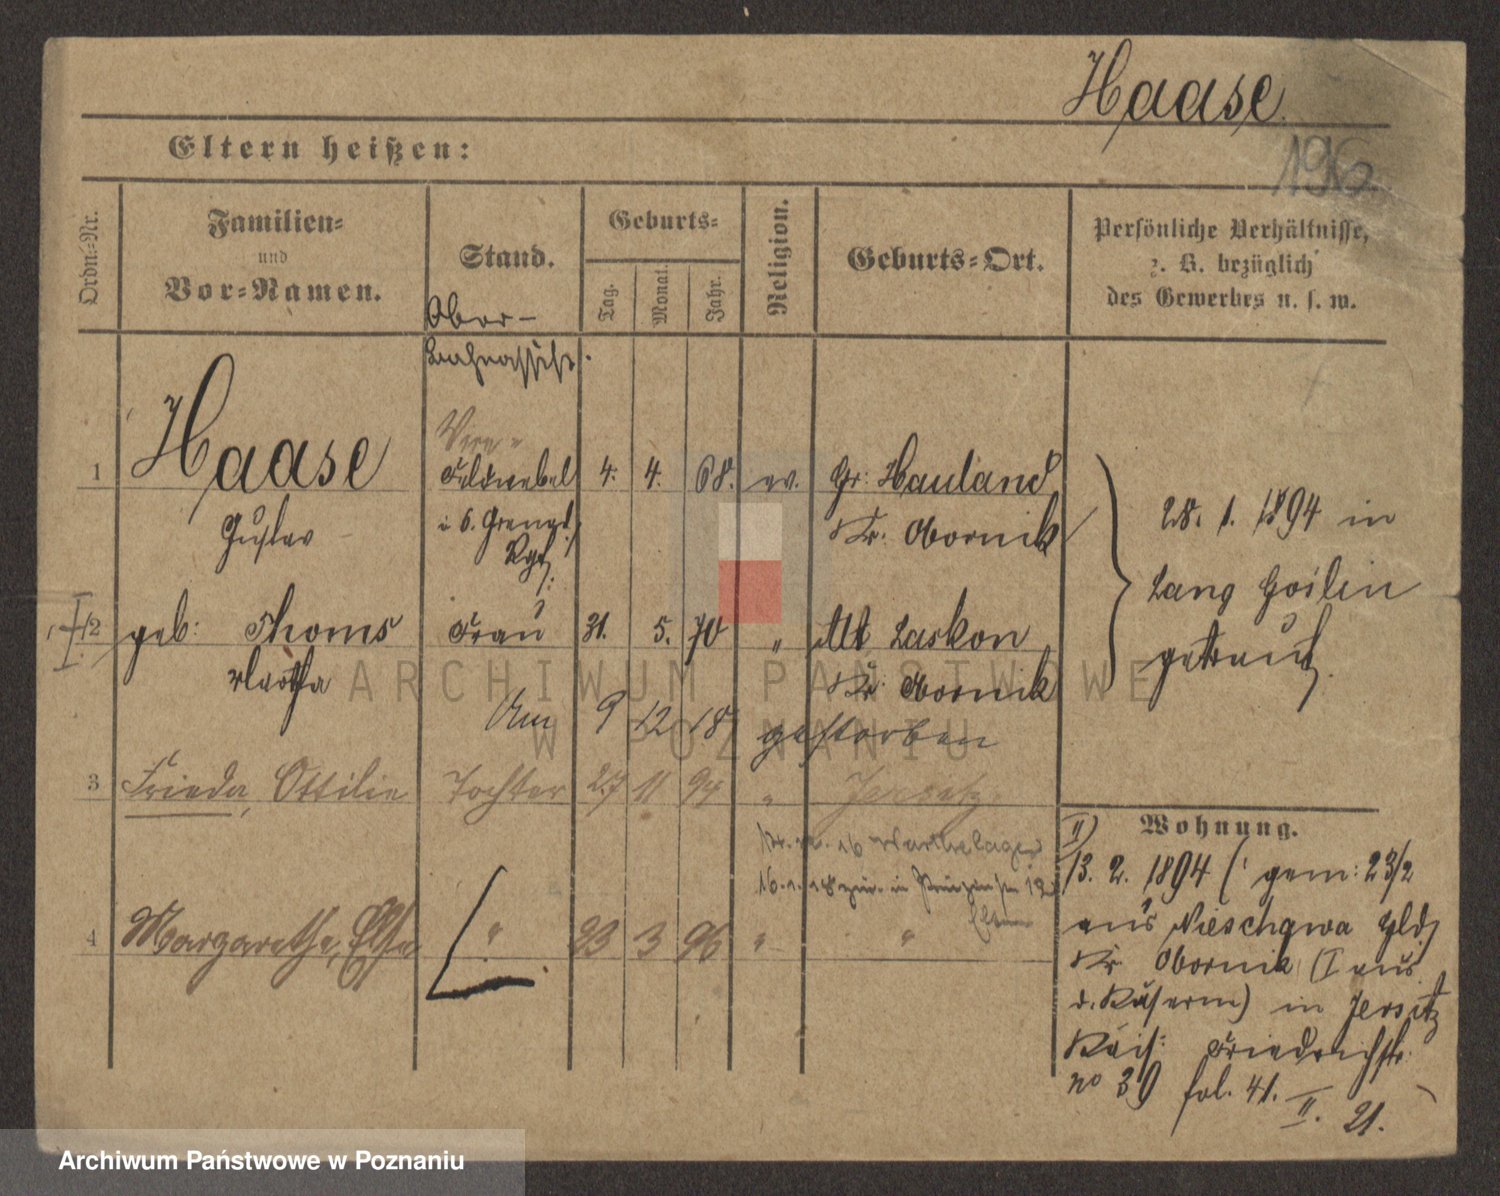 Haase
Eltern heißen:
Ordn.-Nr.
Familien-
und
Vor-Namen.
Stand.
Geburts-
Tag.
Monat.
Jahr.
Religion.
Geburts-Ort.
Persönliche Verhältnisse,
z. B. bezüglich
des Gewerbes u. s. w.
Ober-
1 Haase Feldwebel 4. 4. 68. ev. Gr: Hauland
Gustav i 6. Grenad.
Rgt. Kr. Obornik
28. 1. 1894 in
Lang Goslin
getraut.
2 geb: Thoms Frau 31. 5. 70 " Alt Laskon
Martha Kr. Obornik
Am 9 12 18 gestorben
3 Frieda, Ottilie Tochter 27 11 94 " Jersitz.
Wohnung.
16 Warthelager
4 Margarethe, Else " 23 3 96 " "
II) 13. 2. 1894 (gem: 23/2
aus Nieschawa Hld
Kr Obornik (I aus
d. Kaserne) in Jersitz
Kais: Friedrichstr.
no 39 fol. 41. II. 21.
ARCHIWUM PAŃSTWOWE
W POZNANIU
Archiwum Państwowe w Poznaniu